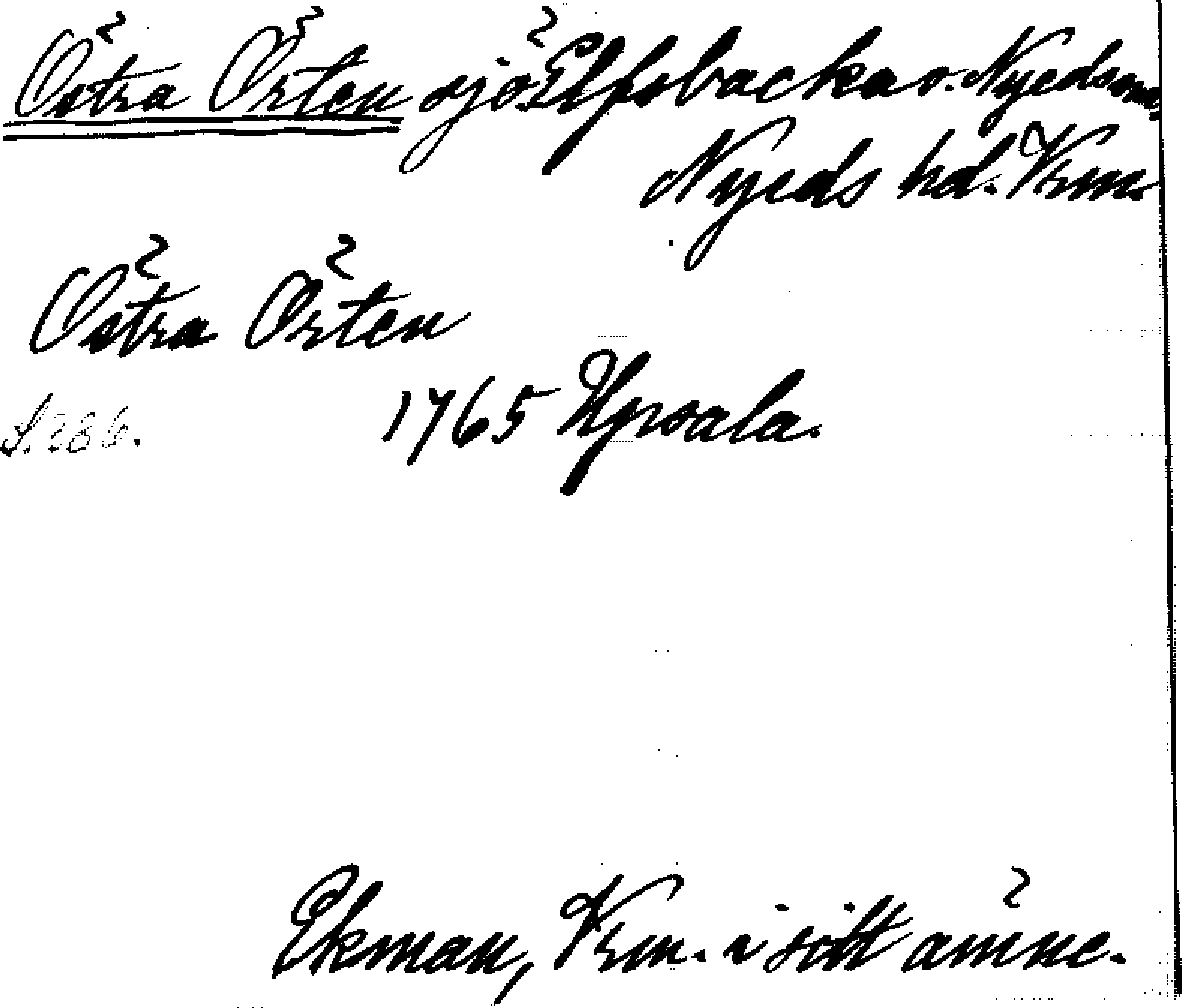 Östra Örten sjö. Elfsbacka o. Nyeds snr,
Nyeds hd. Vrm.
Östra Örten
S. 286. 1765 Upsala.
Ekman, Vrm. i sitt ämne.